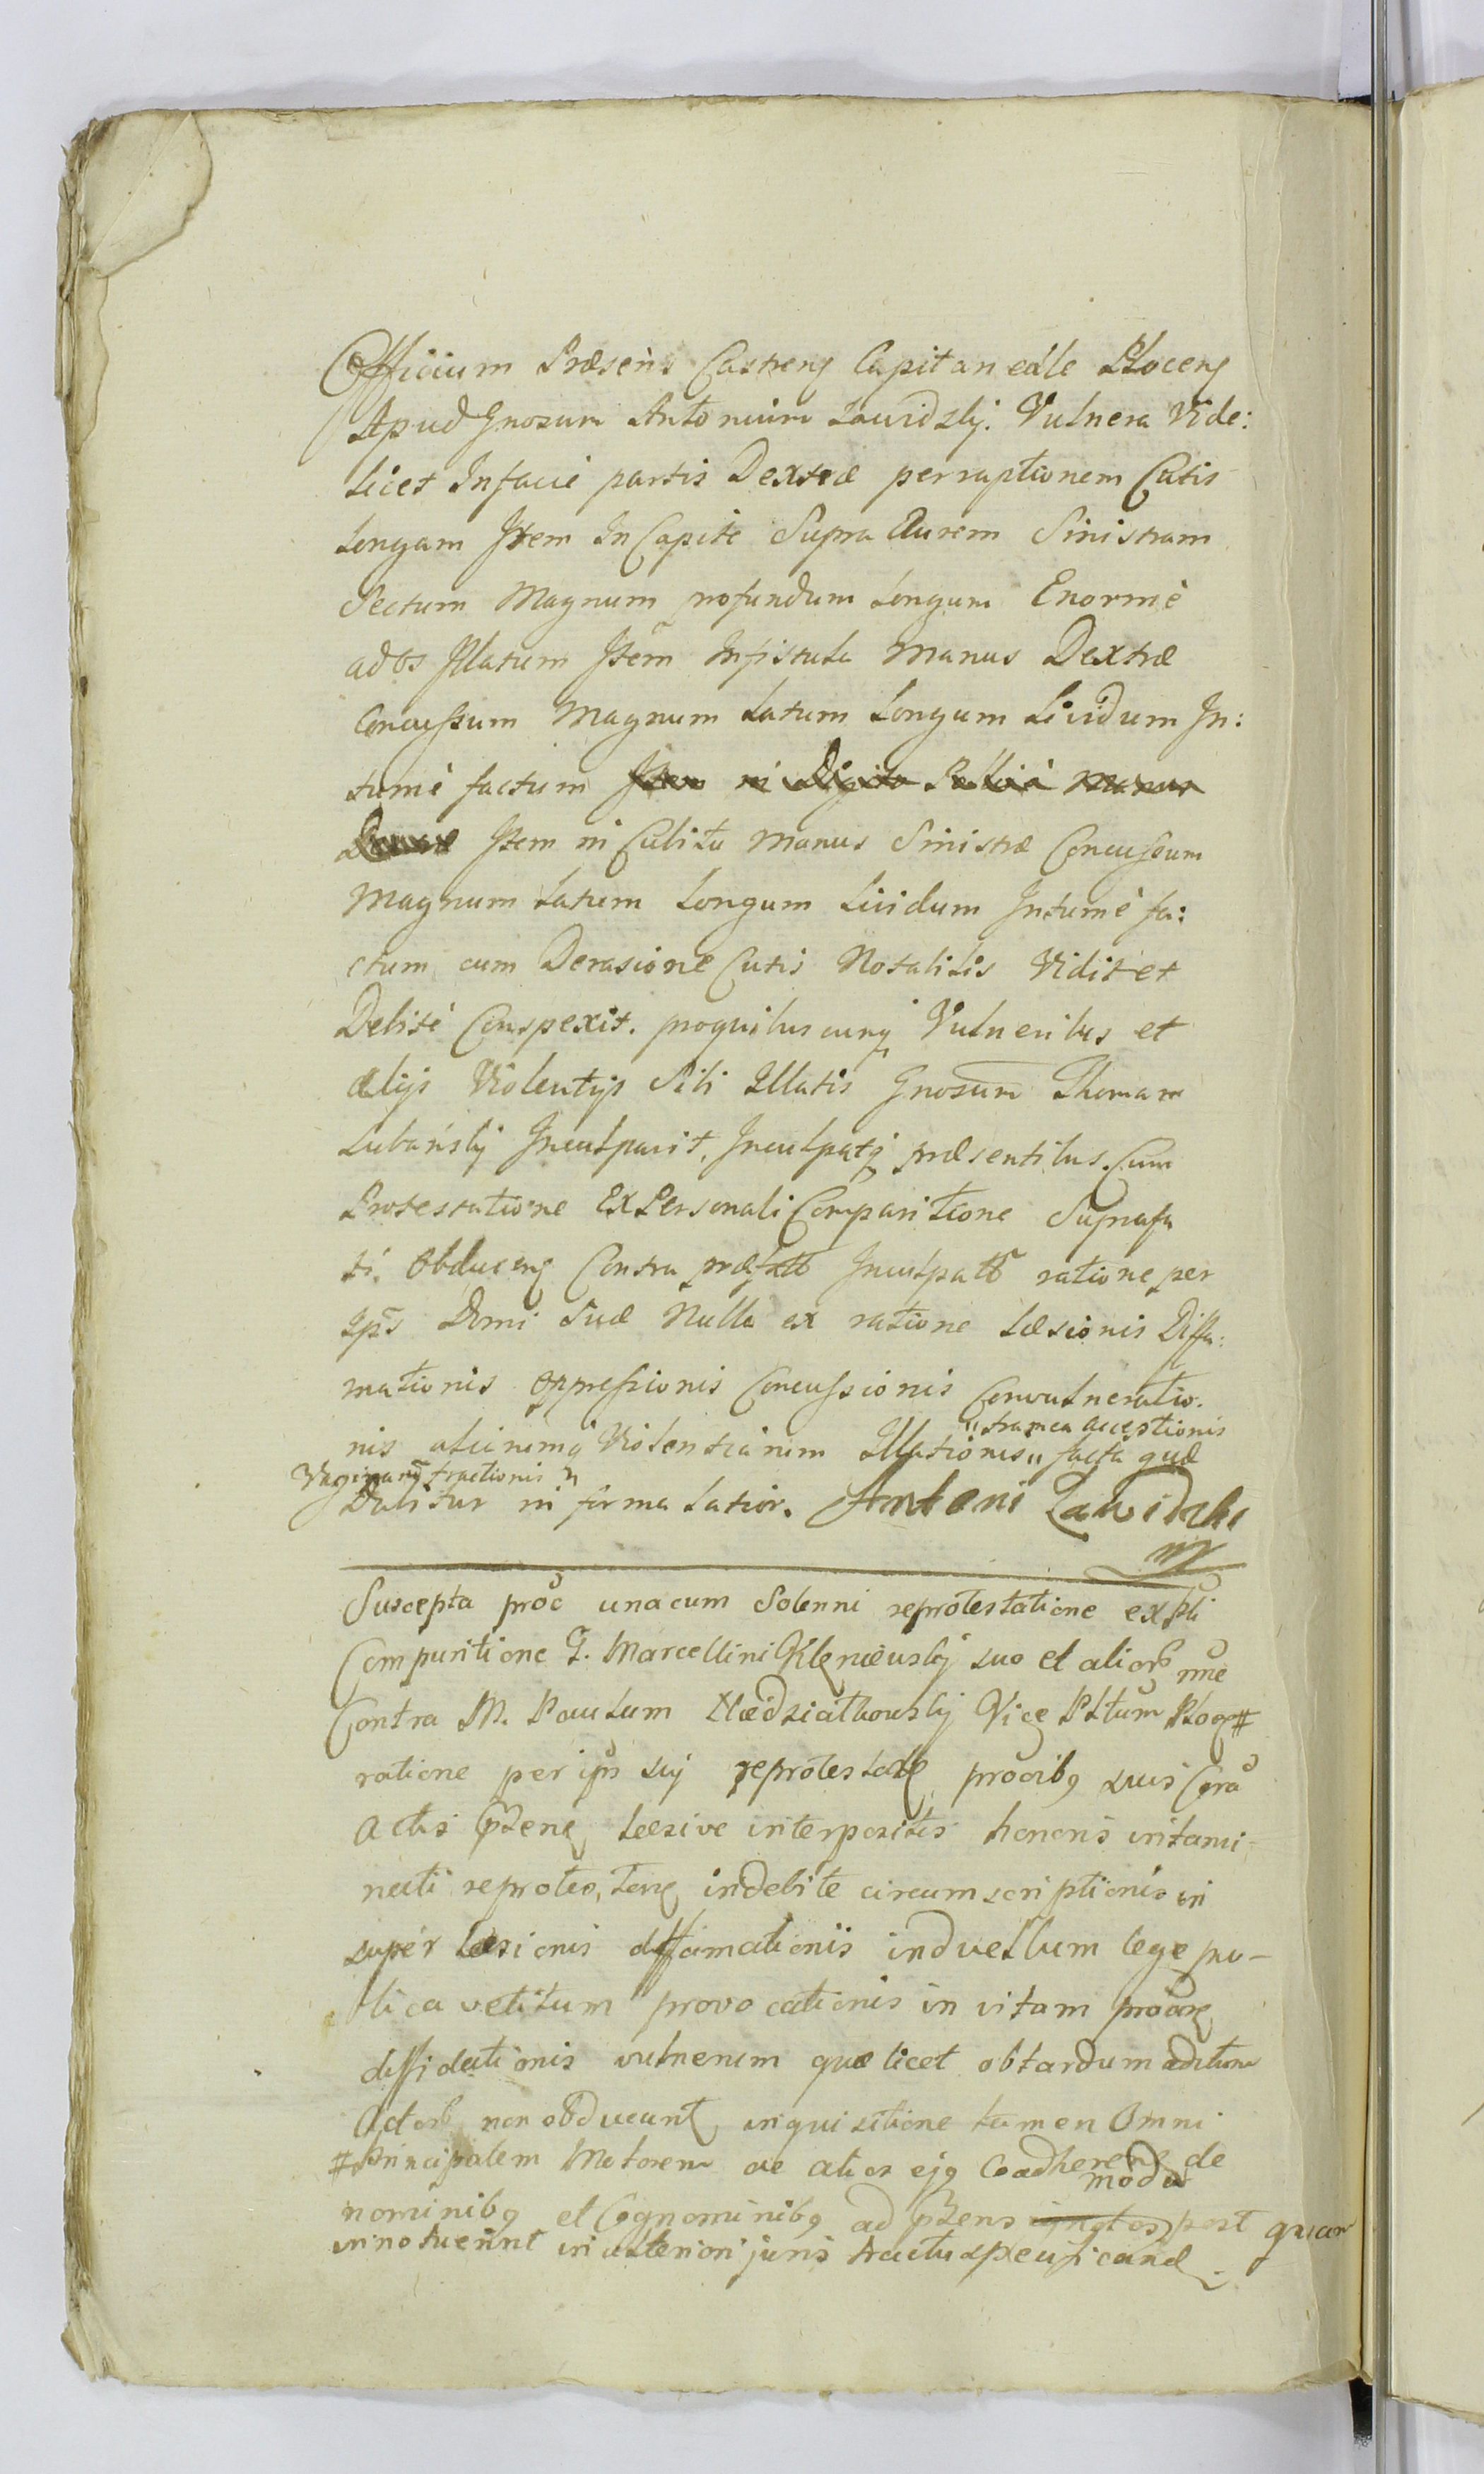 Officium Præsens Castrens Capitaneale Plocens
Apud Gnosum Antonium Zawidzky. Vulnera Vide:
licet Infacie partis Dextræ perraptionem Cutis
longam Item In Capite Supra Aurem Sinistram
Sectum Magnum profundum longum Enorme
ad os Illatum Item Infistula Manus Dextræ
Concussum Magnum Latum Longum Lividum In:
tumè factum Item in Digito Manus
Item in Cubitu Manus Sinistræ Concussum
Magnum Latum Longum Lividum Intumè fa:
ctum cum Derasione Cutis Notabilis Vidit et
Debitè Conspexit. proquibuscunq Vulneribus et
alijs Violentijs Sibi Illatis Gnosum Thomam
Lubański Inculpavit, Inculpatq præsentibus. Cum
Protestatione Ex Personali Comparitione Suprafa
ti. Obducens Contra præfatt Inculpatt ratione per
Ips Domi Suæ Nulla ex ratione Læsionis Diffa:
mationis oppressionis Concussionis Convulneratio.
nis aliarumq Violentiarum Illationis,, facta quæ
,,framea acceptionis
Vaginam tractionis
Dabitur in forma latior. Antoni Zawidzki
mp
Suscepta proc unacum Solenni reprotestatione ex pli
Comparitione G. Marcellini Klęniewskj suo et alior nne
Contra M. Paulum Niedziałkowskj Vice Pltum Ploc #
ratione per ips suj reprotestatq procribq suis Cora
Actis Pzenq læsive interpositis honoris intami-
nati reprotes,tang indebite circumscriptionis in
super læsionis diffamationis induellum lege pu-
blica vetitum provocationis in vitam
diffidationis vulnerum quæ licet obtardum aditum
Actorb non obducant, inquisitione tamen Omni
# Principalem Motorem ac alios ejq Coadherent de
modo
nominibq et Cognominibq ad Pzens ignotos post quam
innotuerint in ulteriori juris tractu specificand